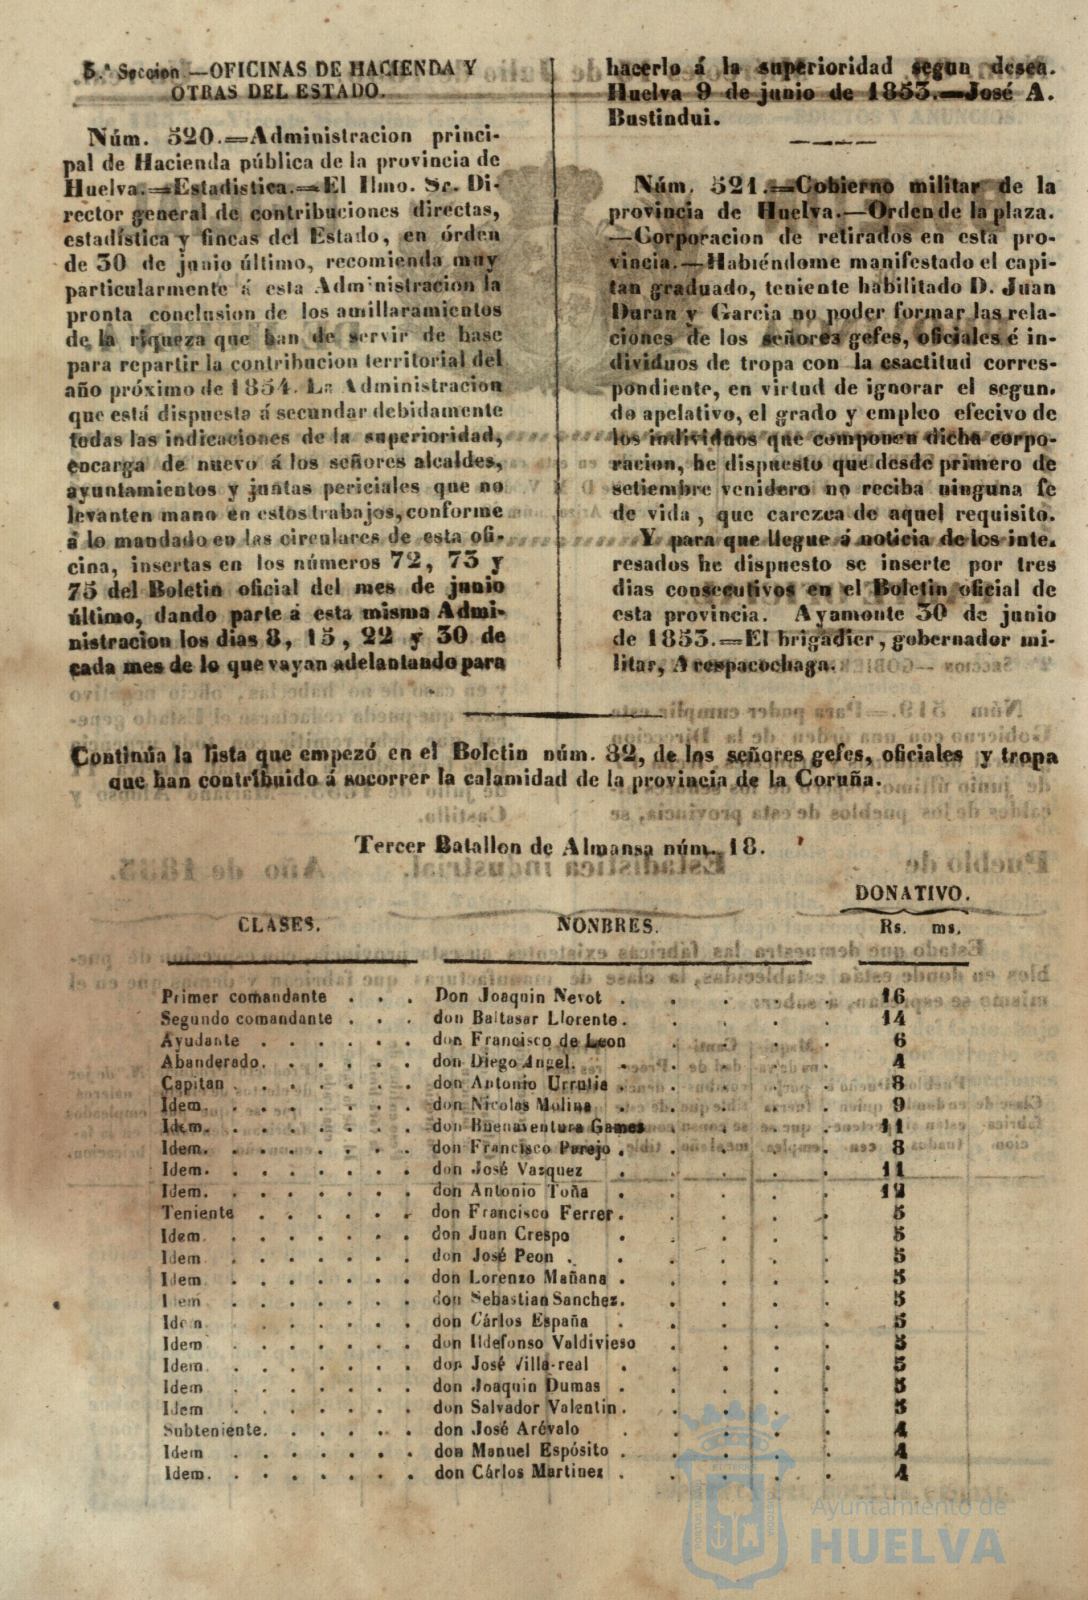 5.ª Seccion.—OFICINAS DE HACIENDA Y
OTRAS DEL ESTADO.
Núm. 520.=Administracion princi-
pal de Hacienda pública de la provincia de
Huelva.=Estadistica.=El Ilmo. Sr. Di-
rector general de contribuciones directas,
estadística y fincas del Estado, en órden
de 30 de junio último, recomienda muy
particularmente á esta Administracion la
pronta conclusion de los amillaramientos
de la riqueza que han de servir de base
para repartir la contribucion territorial del
año próximo de 1854. La Administracion
que está dispuesta á secundar debidamente
todas las indicaciones de la superioridad,
encarga de nuevo á los señores alcaldes,
ayuntamientos y juntas periciales que no
levanten mano en estos trabajos, conforme
á lo mandado en las circulares de esta ofi-
cina, insertas en los números 72, 73 y
75 del Boletin oficial del mes de junio
último, dando parte á esta misma Admi-
nistracion los dias 8, 15, 22 y 30 de
cada mes de lo que vayan adelantando para
hacerlo á la superioridad segun desea.
Huelva 9 de junio de 1853.=José A.
Bustindui.
Núm. 521.=Gobierno militar de la
provincia de Huelva.—Orden de la plaza.
—Corporacion de retirados en esta pro-
vincia.—Habiéndome manifestado el capi-
tan graduado, teniente habilitado D. Juan
Duran y Garcia no poder formar las rela-
ciones de los señores gefes, oficiales é in-
dividuos de tropa con la esactitud corres-
pondiente, en virtud de ignorar el segun.
do apelativo, el grado y empleo efecivo de
los individuos que componen dicha corpo-
racion, he dispuesto que desde primero de
setiembre venidero no reciba ninguna fe
de vida, que carezca de aquel requisito.
Y para que llegue á noticia de los inte.
resados he dispuesto se inserte por tres
dias consecutivos en el Boletin oficial de
esta provincia. Ayamonte 30 de junio
de 1853.=El brigadier, gobernador mi-
litar, Arespacochaga.
Continúa la lista que empezó en el Boletin núm. 82, de los señores gefes, oficiales y tropa
que han contribuido á socorrer la calamidad de la provincia de la Coruña.
Tercer Batallon de Almansa núm. 18.
DONATIVO.
CLASES. NONBRES. Rs. ms.
Primer comandante . . . Don Joaquin Nevot . . . . . 16
Segundo comandante . . . don Baltasar Llorente . . . . . 14
Ayudante . . . . . . don Francisco de Leon . . . . 6
Abanderado . . . . . . don Diego Angel . . . . . 4
Capitan . . . . . . . don Antonio Urrutia . . . . . 8
Idem. . . . . . . . don Nicolas Molina . . . . . 9
Idem. . . . . . . . don Buenaventura Games . . . . 11
Idem. . . . . . . . don Francisco Parejo . . . . . 8
Idem. . . . . . . . don José Vazquez . . . . . 11
Idem. . . . . . . . don Antonio Toña . . . . . 12
Teniente . . . . . . don Francisco Ferrer . . . . . 5
Idem. . . . . . . . don Juan Crespo . . . . . 5
Idem . . . . . . . don José Peon . . . . . 5
Idem . . . . . . . don Lorenzo Mañana . . . . . 5
Idem . . . . . . . don Sebastian Sanchez . . . . . 5
Idem . . . . . . . don Cárlos España . . . . . 5
Idem . . . . . . . don Ildefonso Valdivieso . . . . 5
Idem . . . . . . . don José Villa-real . . . . . 5
Idem . . . . . . . don Joaquin Dumas . . . . . 5
Idem . . . . . . . don Salvador Valentin . . . . . 5
Subteniente. . . . . . don José Arévalo . . . . . 4
Idem . . . . . . . don Manuel Espósito . . . . . 4
Idem. . . . . . . . don Cárlos Martinez . . . . . 4
Ayuntamiento de
HUELVA